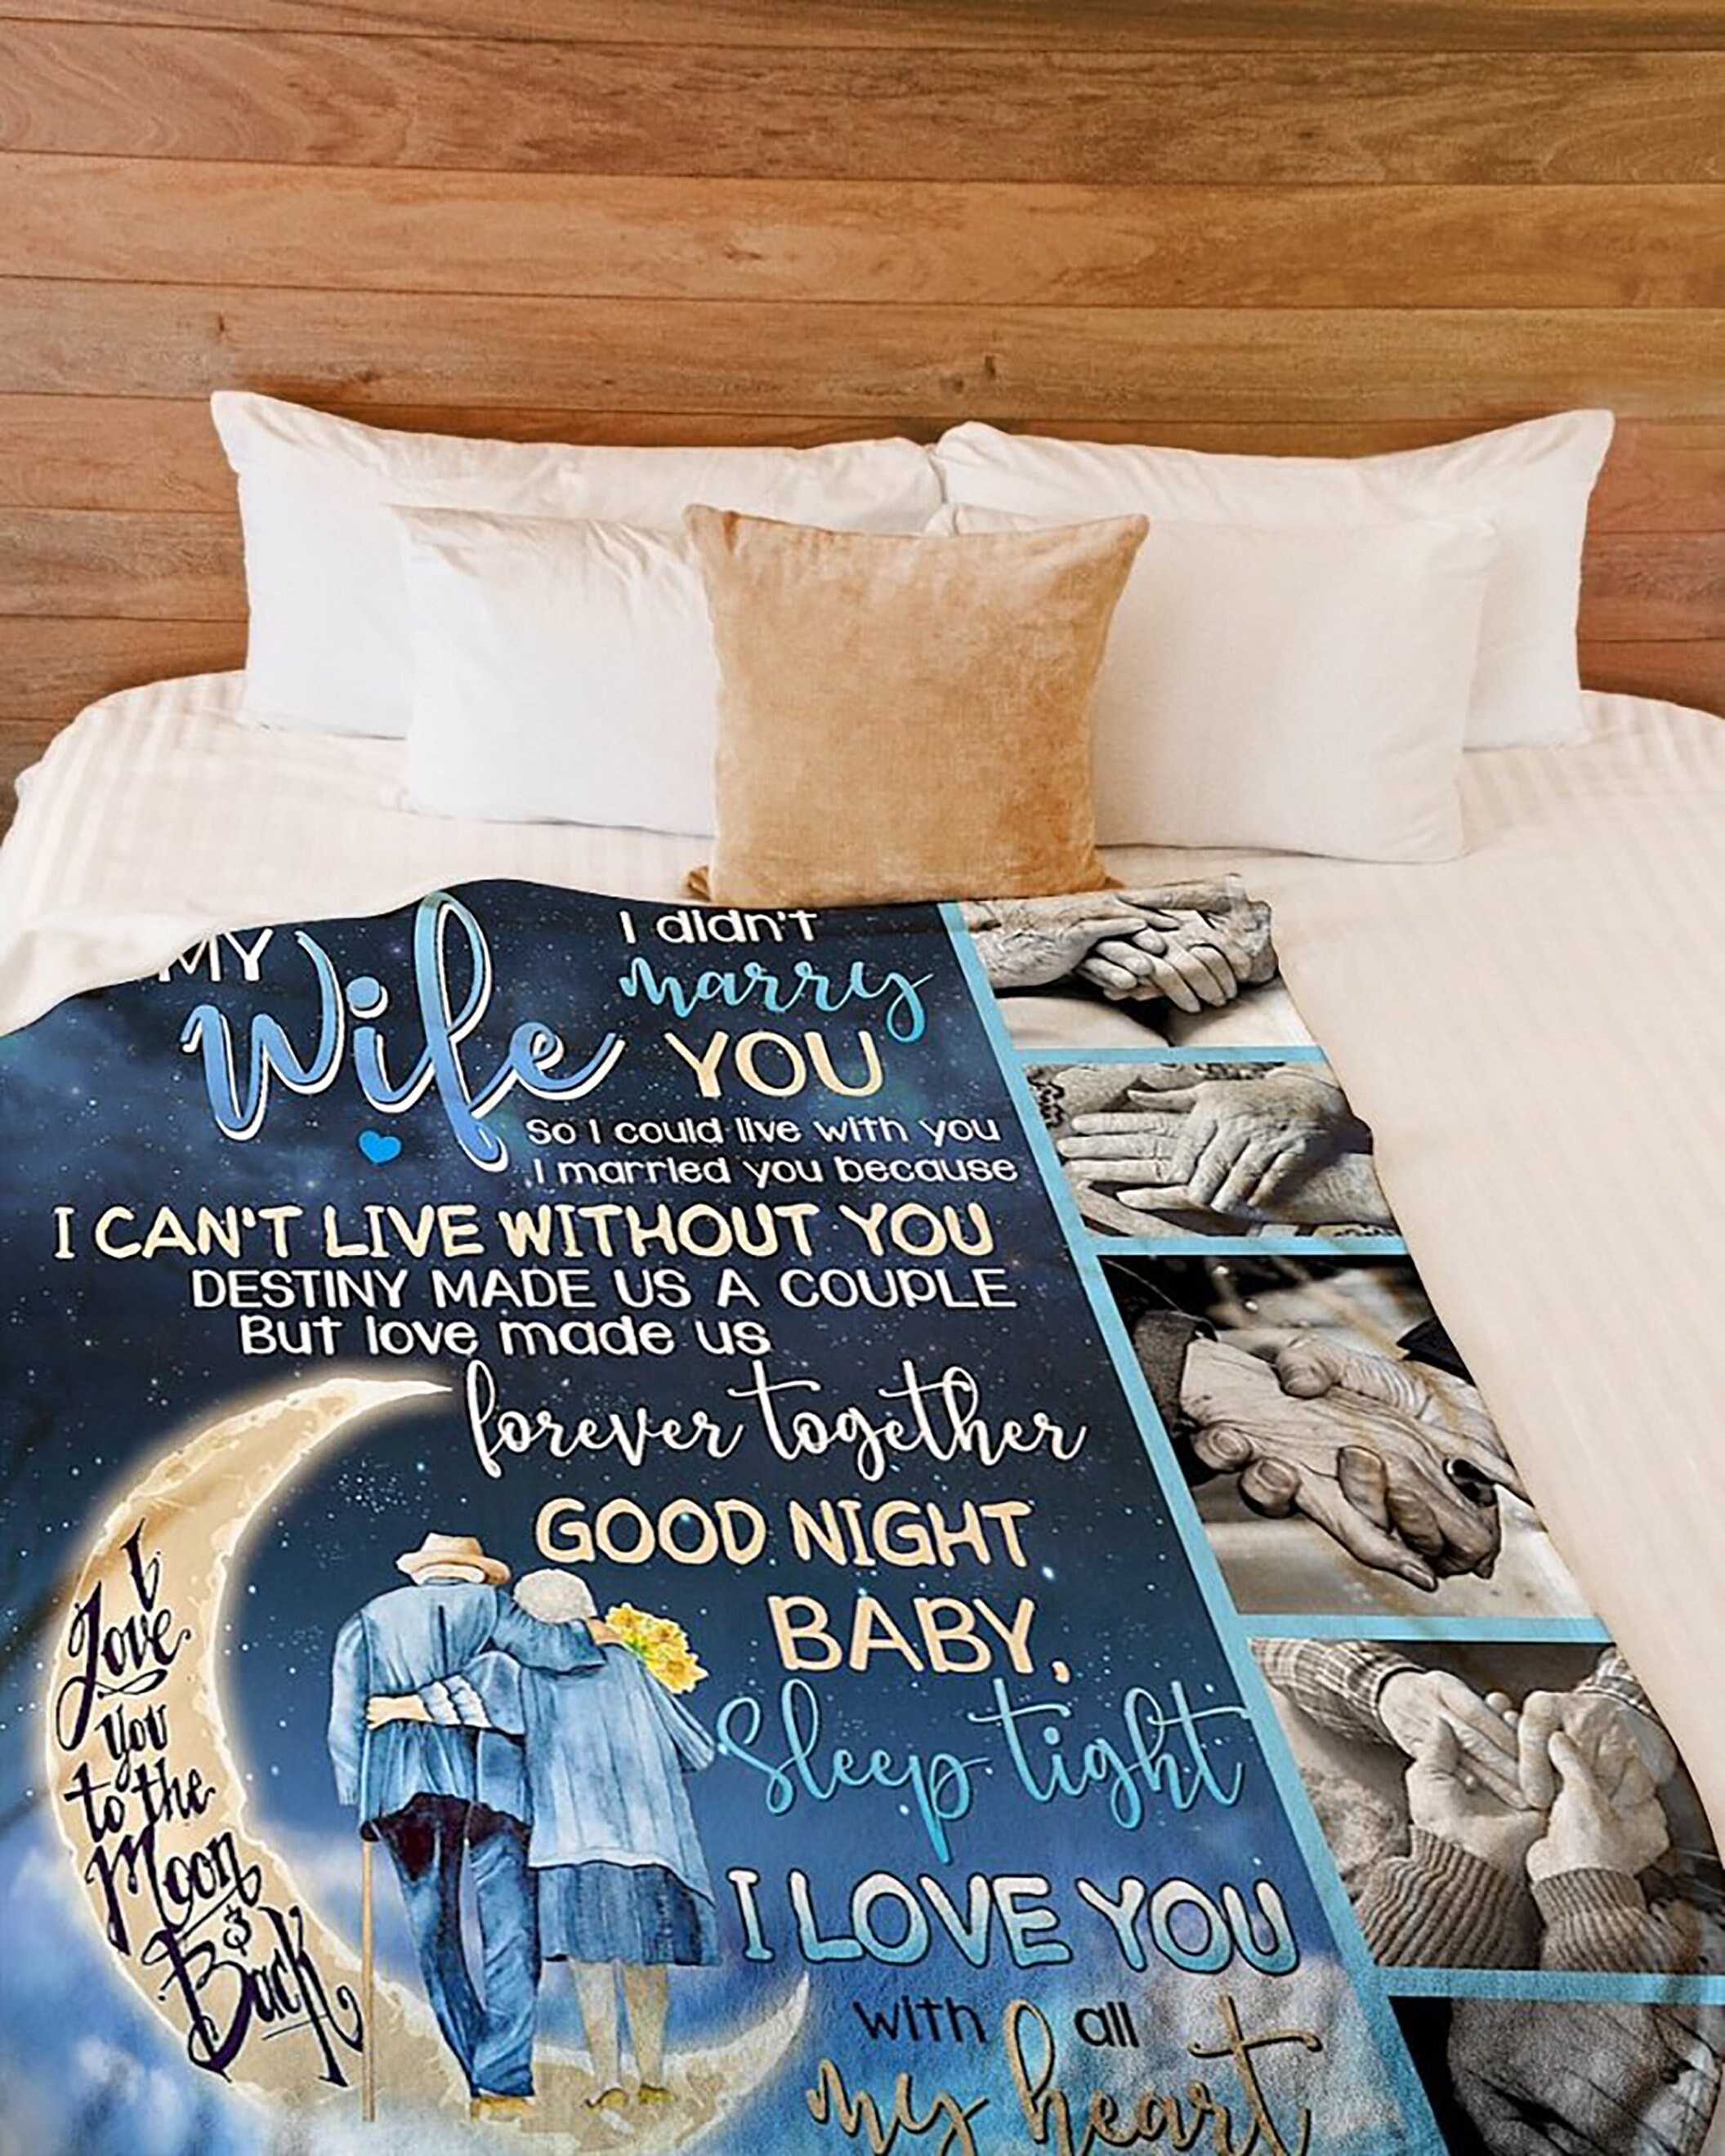 MY
Wife
I didn't
marry
YOU
So I could live with you
I married you because
I CAN'T LIVE WITHOUT YOU
DESTINY MADE US A COUPLE
But love made us
forever together
GOOD NIGHT
BABY,
Sleep tight
I LOVE YOU
with all
my heart
I
Love
you
to the
Moon
&
Back